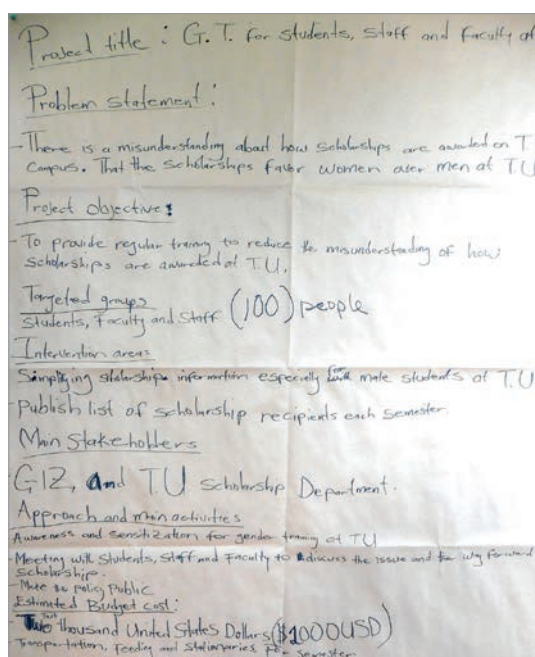 Project title : G.T. for students, staff and faculty of
Problem statement :
- There is a misunderstanding about how scholarships are awarded on T.
Campus. That the scholarships favor women over men at T.U
Project objective :
- To provide regular training to reduce the misunderstanding of how
scholarships are awarded at T.U.
Targeted groups
Students, Faculty and Staff (100) people
Intervention areas
Simplifying scholarship information especially male students at T.U
Publish list of scholarship recipients each semester
Main Stakeholders
GIZ, and TU Scholarship Department.
Approach and main activities
Awareness and Sensitization for gender training at TU
- Meeting with Students, Staff and Faculty to discuss the issue and the way forward
scholarship.
- Make policy public
Estimated Budget cost :
thousand United States Dollars ($1000USD)
- Transportation, feeding and stationaries Per semester